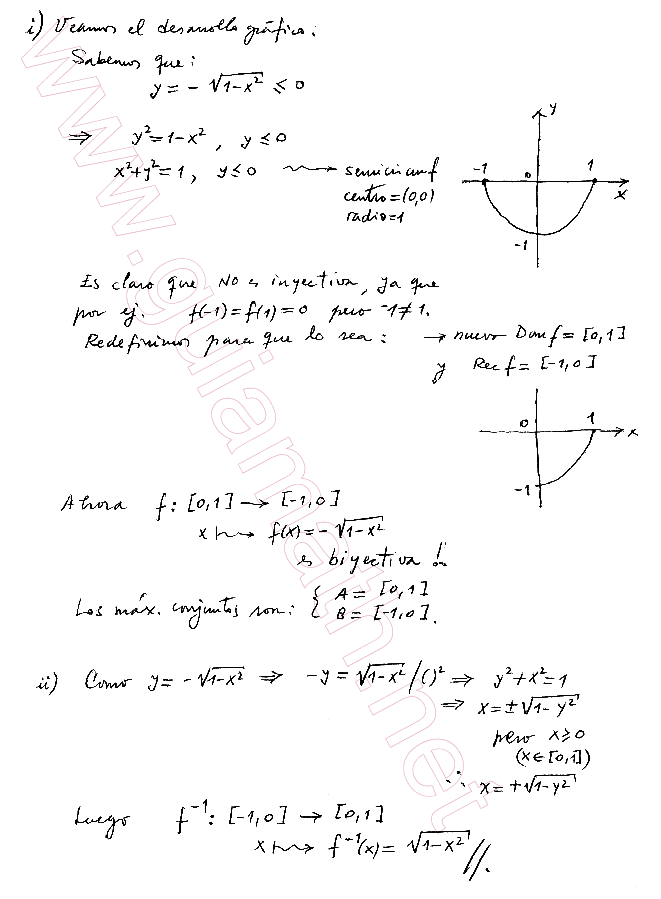 i) Veamos el desarrollo gráfico:
Sabemos que:
y = - √(1-x²) ≤ 0
⇒ y² = 1-x² , y ≤ 0
x²+y² = 1, y ≤ 0 ⟿ semicircunf
centro = (0,0)
radio = 1
y
-1 0 1
x
-1
Es claro que NO es inyectiva, ya que
por ej. f(-1) = f(1) = 0 pero -1 ≠ 1.
Redefinimos para que lo sea: → nuevo Dom f = [0,1]
y Rec f = [-1,0]
0 1
x
-1
Ahora f: [0,1] → [-1,0]
x ⟿ f(x) = - √(1-x²)
es biyectiva !.
Los máx. conjuntos son: { A = [0,1]
B = [-1,0].
ii) Como y = - √(1-x²) ⇒ -y = √(1-x²) /()² ⇒ y²+x² = 1
⇒ x = ± √(1-y²)
pero x ≥ 0
(x ∈ [0,1])
∴ x = + √(1-y²)
Luego f⁻¹: [-1,0] → [0,1]
x ⟿ f⁻¹(x) = √(1-x²) //.
www.guiamath.net